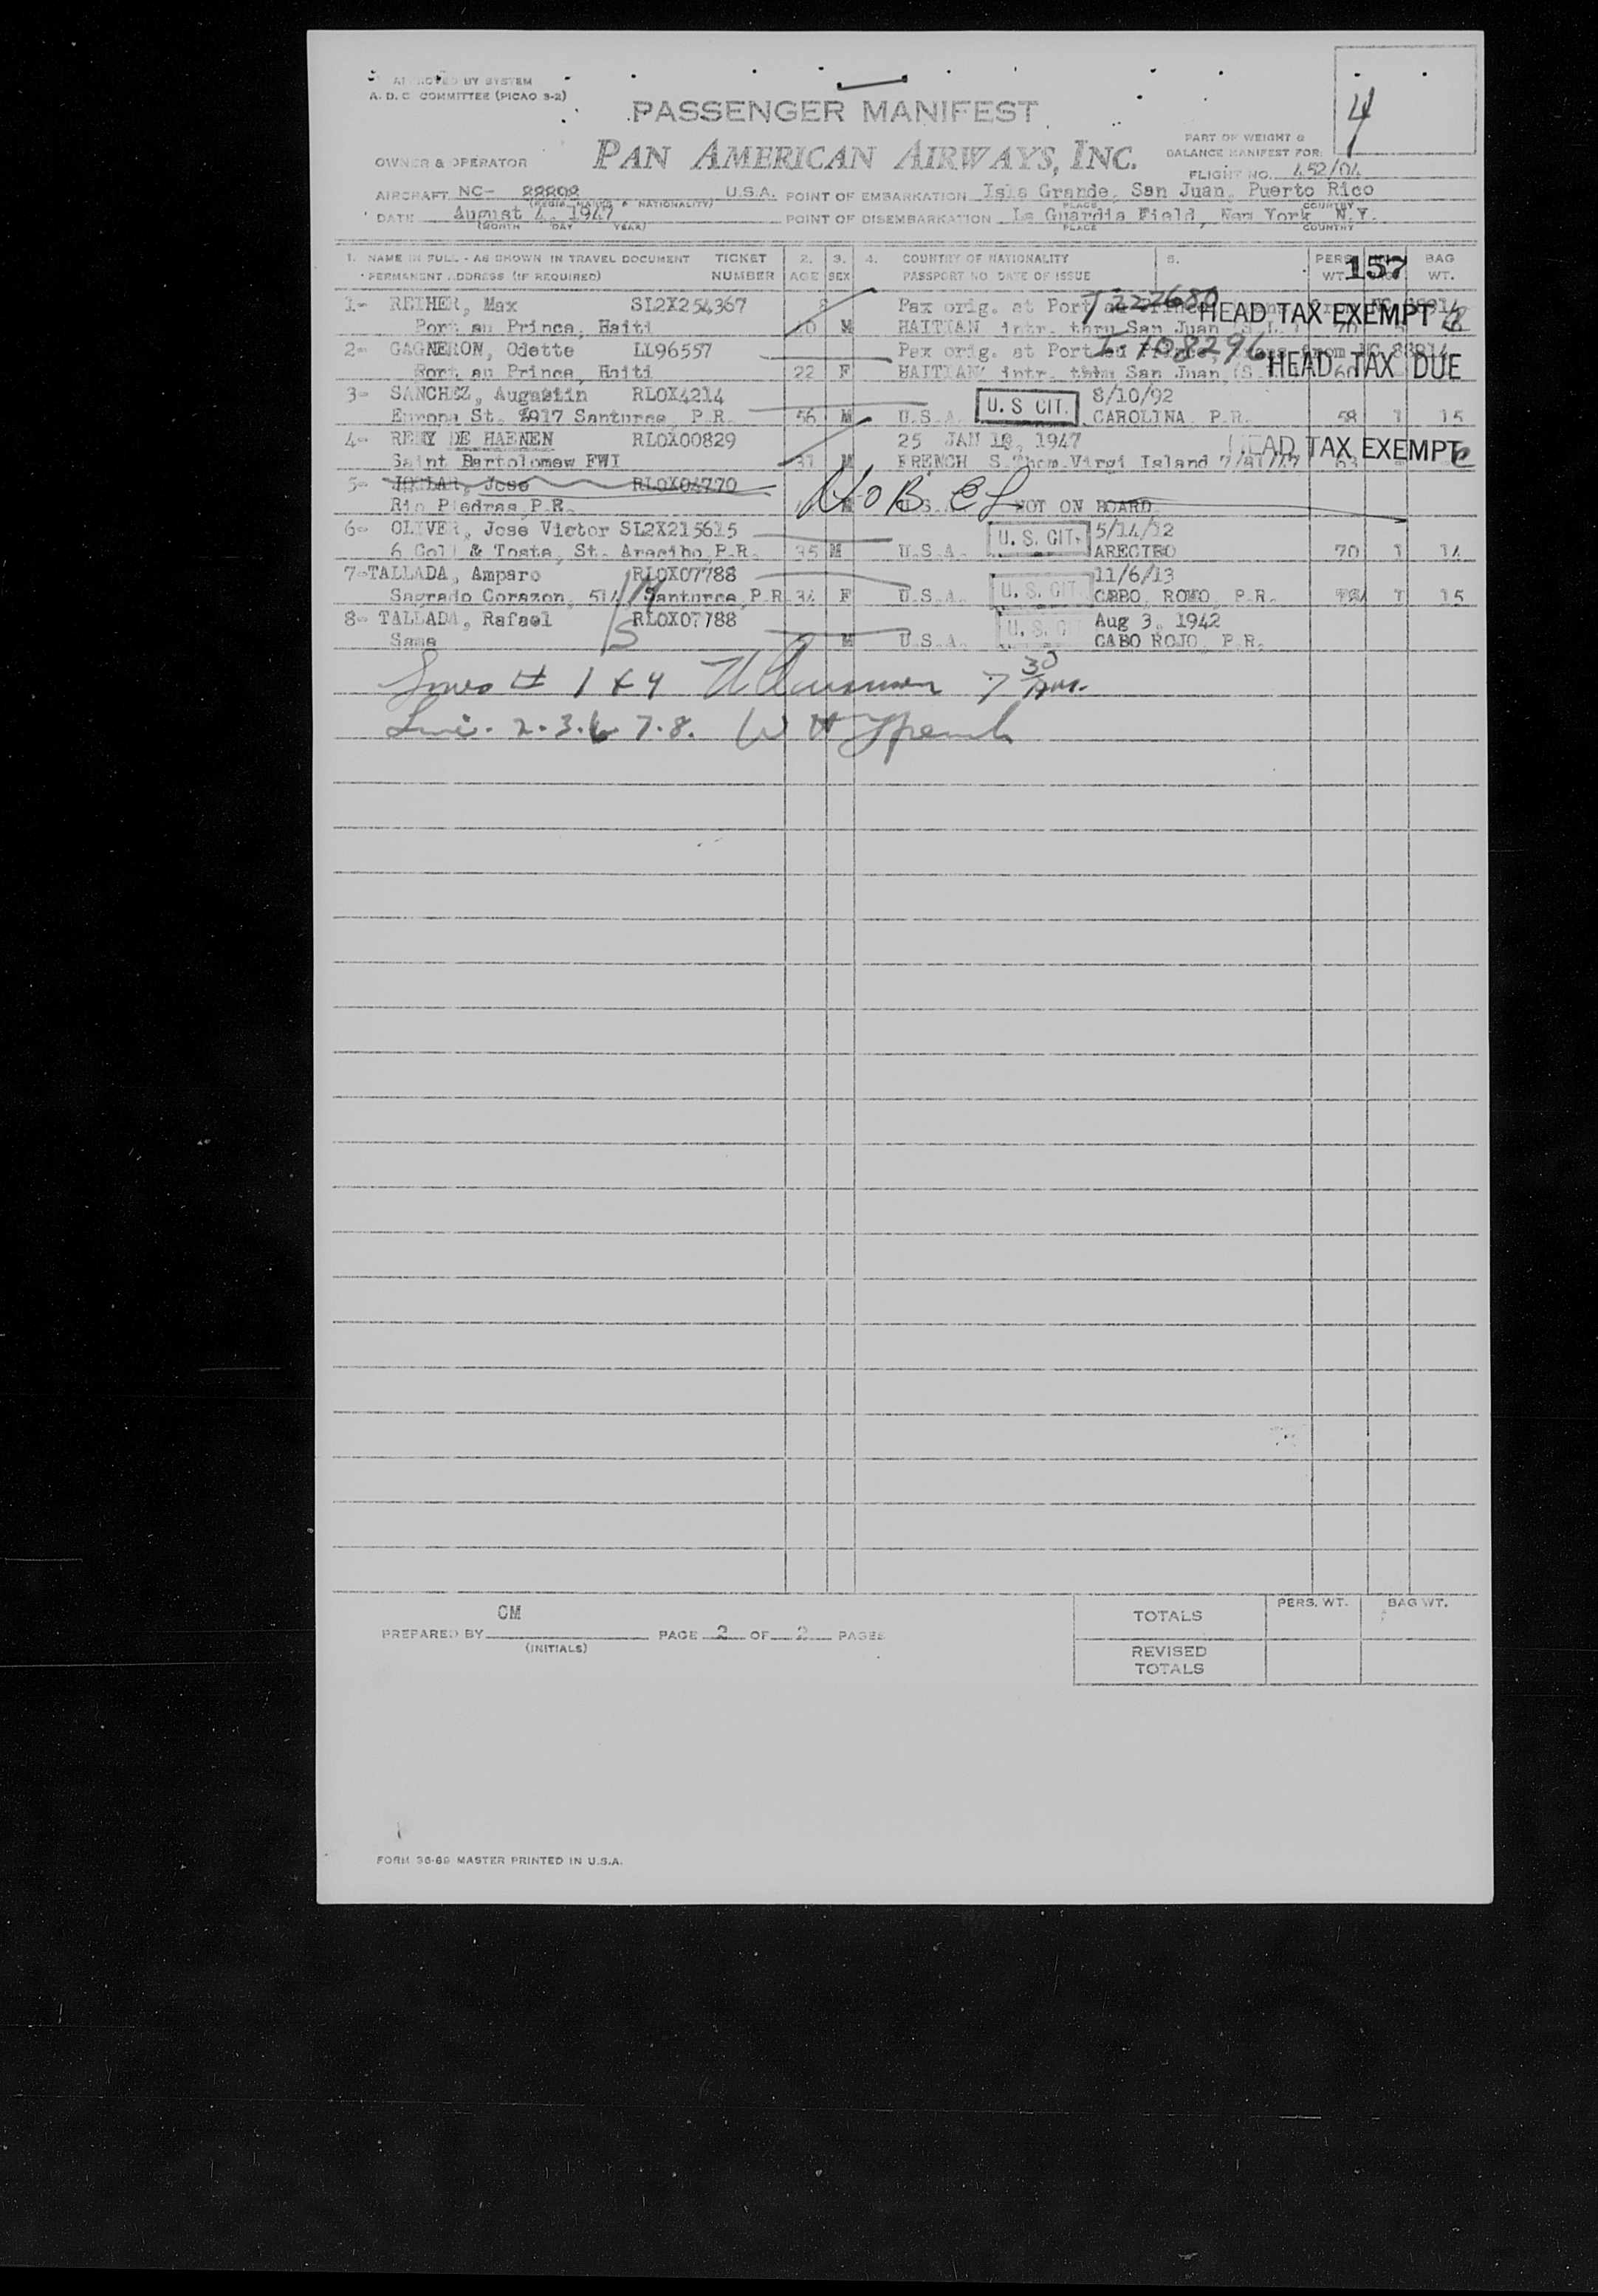 APPROVED BY SYSTEM
A. D. C. COMMITTEE (PICAO 3-2)
4
PASSENGER MANIFEST
PART OF WEIGHT &
BALANCE MANIFEST FOR:
OWNER & OPERATOR PAN AMERICAN AIRWAYS, INC.
FLIGHT NO. 452/04
AIRCRAFT NC- U.S.A. POINT OF EMBARKATION Isla Grande, San Juan, Puerto Rico
(REGIS. MARKS & NATIONALITY) PLACE COUNTRY
DATE August 4, 1947 POINT OF DISEMBARKATION La Guardia Field, New York N.Y.
(MONTH DAY YEAR) PLACE COUNTRY
1. NAME IN FULL - AS SHOWN IN TRAVEL DOCUMENT TICKET 2. 3. 4. COUNTRY OF NATIONALITY 5. PERS. BAG
PERMANENT ADDRESS (IF REQUIRED) NUMBER AGE SEX PASSPORT NO. DATE OF ISSUE WT. 157 WT.
1- REIHER, Max SL2X254367 Pax orig. at Port T222680
Port au Prince, Haiti M HAITIAN intr. thru San Juan HEAD TAX EXEMPT
2- GAGNERON, Odette LL96557 Pax orig. at Port au Prince, I-708296
Port au Prince, Haiti 22 F HAITIAN intr. thru San Juan, HEAD TAX DUE
3- SANCHEZ, Augastin RLOX4214 U. S CIT. 8/10/92
Europa St. Santurce, P.R. 56 M U.S.A. CAROLINA P.R. 58 1 15
4- REMY DE HAENEN RLOX00829 25 JAN 1947 HEAD TAX EXEMPT
Saint Bartolomew FWI 31 M FRENCH S.Thom.Virgi Island
5- Jose RLOX04770
Rio Piedras P.R. NOB U.S. NOT ON BOARD
6- OLIVER, José Victor SL2X215615 U. S. CIT. 5/14/12
6 Coll & Toste, St. Arecibo, P.R. 35 M U.S.A. ARECIBO 70 1 14
7-TALLADA, Amparo RLOX07788 U. S. CIT 11/6/13
Sagrado Corazon, 514, Santurce, P.R. 34 F U.S.A. CABO, ROJO, P.R. 1 15
8- TALLADA, Rafael RLOX07788 U. S. C Aug 3, 1942
Same M U.S.A. CABO ROJO, P.R.
Lines # 1 & 4 7 30 Am.
Line. 2.3.6 7.8. W H
CM
PREPARED BY PAGE 2 OF 2 PAGES
(INITIALS)
PERS. WT. BAG WT.
TOTALS
REVISED
TOTALS
FORM 36-69 MASTER PRINTED IN U.S.A.